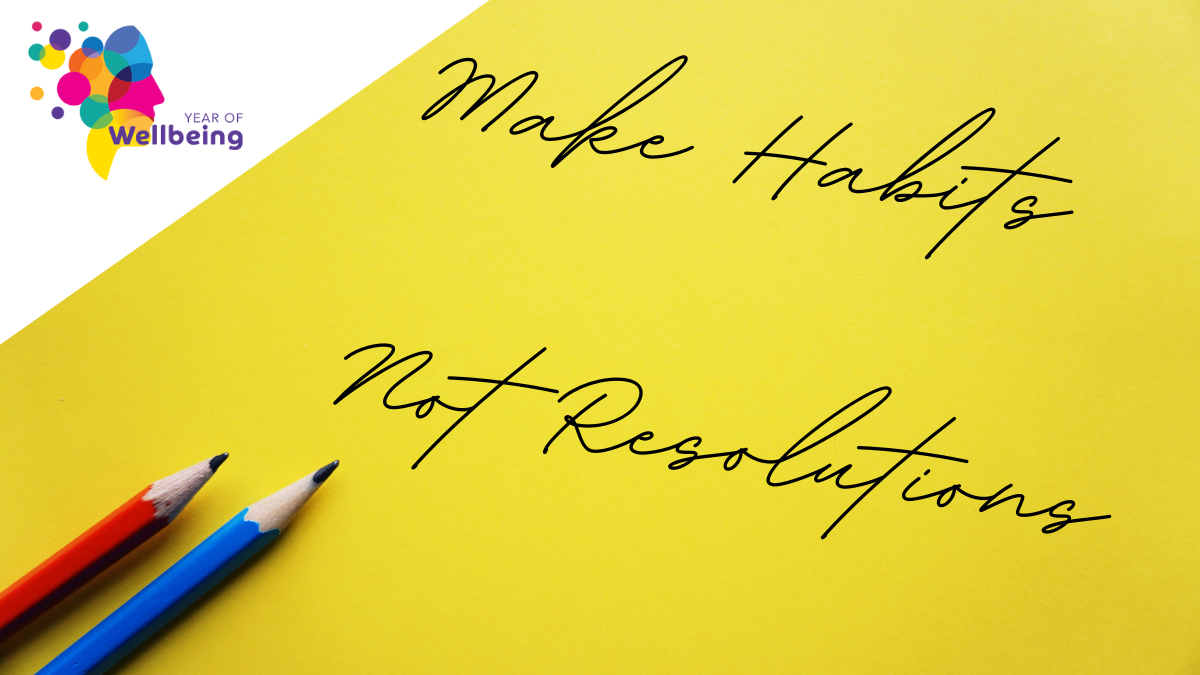 YEAR OF
Wellbeing
Make Habits
Not Resolutions